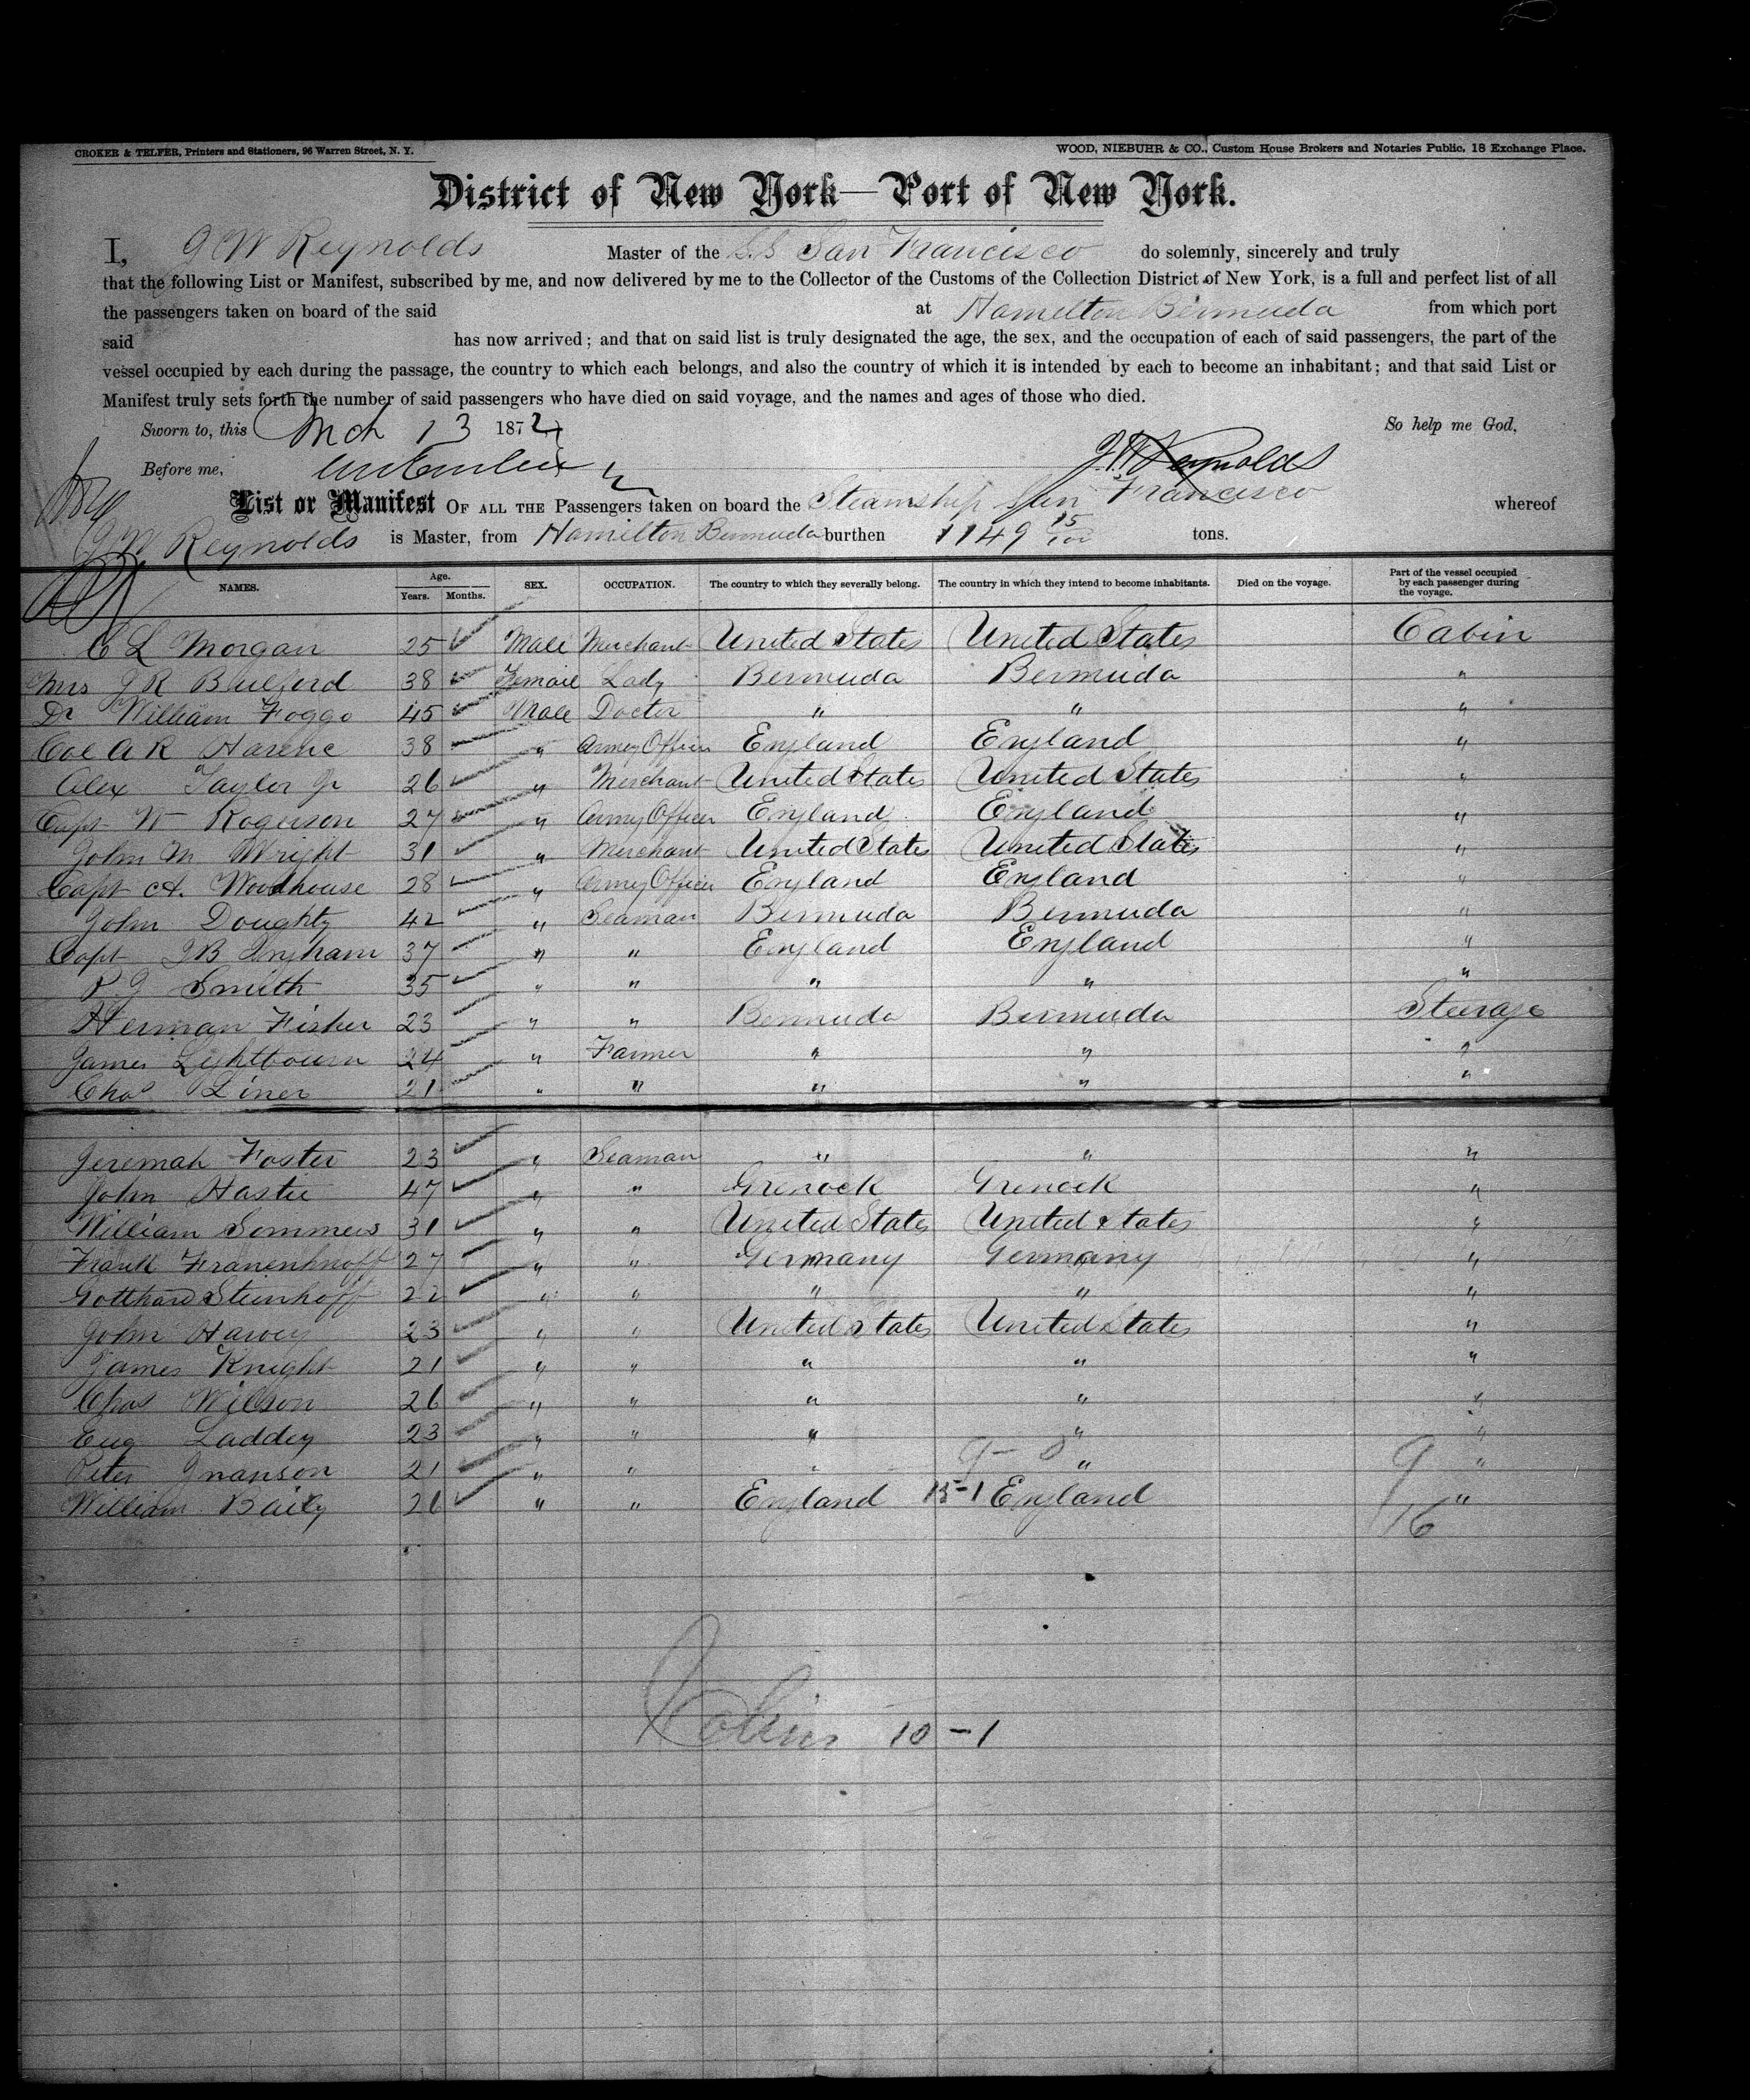 CROKER & TELFER, Printers and Stationers, 96 Warren Street, N. Y.
WOOD, NIEBUHR & CO., Custom House Brokers and Notaries Public, 18 Exchange Place.
District of New York—Port of New York.
I, G W Reynolds Master of the S.S San Francisco do solemnly, sincerely and truly
that the following List or Manifest, subscribed by me, and now delivered by me to the Collector of the Customs of the Collection District of New York, is a full and perfect list of all
the passengers taken on board of the said at Hamelton Bermuda from which port
said has now arrived; and that on said list is truly designated the age, the sex, and the occupation of each of said passengers, the part of the
vessel occupied by each during the passage, the country to which each belongs, and also the country of which it is intended by each to become an inhabitant; and that said List or
Manifest truly sets forth the number of said passengers who have died on said voyage, and the names and ages of those who died.
Sworn to, this Mch 13 1872 So help me God,
Before me, G W Reynolds
List or Manifest OF ALL THE Passengers taken on board the Steamship San Francisco whereof
G W Reynolds is Master, from Hamilton Bermuda burthen 1149 15/100 tons.
NAMES. Age. Years. Months. SEX. OCCUPATION. The country to which they severally belong. The country in which they intend to become inhabitants. Died on the voyage. Part of the vessel occupied by each passenger during the voyage.
C L Morgan 25 Male Merchant United States United States Cabin
Mrs J R 38 Female Lady Bermuda Bermuda "
Dr William Foggo 45 Male Doctor " " "
Col A R Harene 38 " Army Officer England England "
Alex Taylor Jr 26 " Merchant United States United States "
Capt W Rogerson 27 " Army Officer England England "
John M Wright 31 " Merchant United States United States "
Capt A. Woodhouse 28 " Army Officer England England "
John Doughty 42 " Seaman Bermuda Bermuda "
Capt J B Ingham 37 " " England England "
P. J Smith 35 " " " " "
Herman Fisher 23 " " Bermuda Bermuda Steerage
James Lightbourn 24 " Farmer " " "
Chas Liner 21 " " " " "
Jeremah Foster 23 " Seaman " " "
John Hastie 47 " " Grenock Grenock "
William Sommers 31 " " United States United States "
Frank 27 " " Germany Germany "
Gotthard Steinhoff 22 " " " " "
John Harvey 23 " " United States United States "
James Knight 21 " " " " "
Chas Wilson 26 " " " " "
Eug Laddey 23 " " " " "
Peter 21 " " " " "
William Baily 26 " " England 15-1 England "
9 - 0
9
16
Cabin 10 - 1